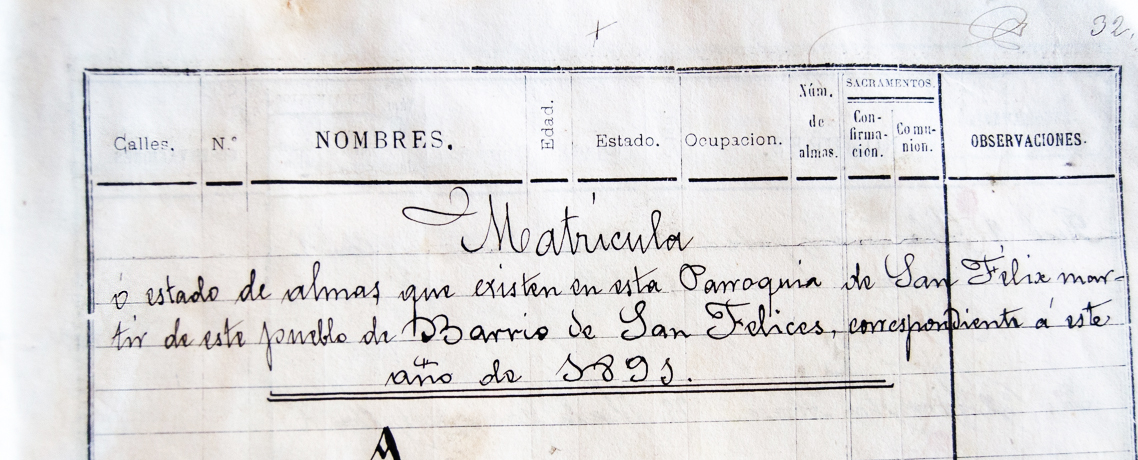 32.
Calles. N.º NOMBRES. Edad. Estado. Ocupacion. Núm. de almas. SACRAMENTOS. Con-firma-cion. Comu-nion. OBSERVACIONES.
Matrícula
ó estado de almas que existen en esta Parroquia de San Félix mar-
tir de este pueblo de Barrio de San Felices, correspondiente á este
año de 1891.
A